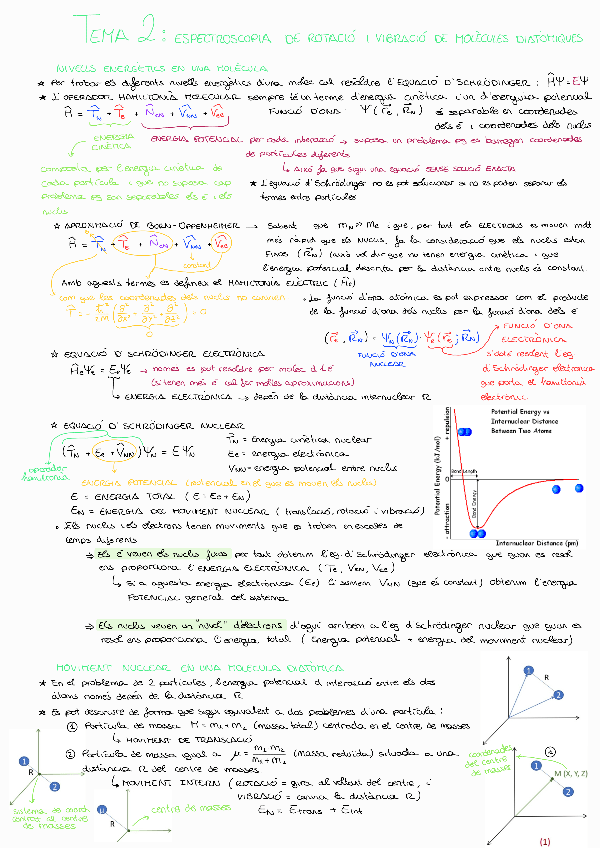 TEMA 2: ESPECTROSCOPIA DE ROTACIÓ I VIBRACIÓ DE MOLÈCULES DIATÒMIQUES
NIVELLS ENERGÈTICS EN UNA MOLÈCULA
★ Per trobar els diferents nivells energètics d'una molec cal resoldre l'EQUACIÓ D'SCHRÖDINGER: ĤΨ=EΨ
★ L'OPERADOR HAMILTONIÀ MOLECULAR sempre té un terme d'energia cinètica i un d'energia potencial
Ĥ = T̂N + T̂e + V̂eN + V̂NN + V̂ee FUNCIÓ D'ONA Ψ(r⃗e, R⃗N) és separable en coordenades
dels e⁻ i coordenades dels nuclis
ENERGIA CINÈTICA
ENERGIA POTENCIAL per cada interacció → suposa un problema pq es barregen coordenades
de partícules diferents
↳ Això fa que sigui una equació SENSE SOLUCIÓ EXACTA
per l'energia cinètica de
cada partícula i que no suposa cap
problema es son separables els e⁻ i els
nuclis
★ L'equació d'Schrödinger no es pot solucionar si no es poden separar els
termes entre partícules
★ APROXIMACIÓ DE BORN-OPPENHEIMER → Sabent que mN >> me i que, per tant els ELECTRONS es mouen molt
més ràpid que els NUCLIS, fa la consideració que els nuclis estan
FIXES (R⃗N) (això vol dir que no tenen energia cinètica i que
l'energia potencial descrita per la distància entre nuclis és constant
Ĥ = T̂N + T̂e + V̂eN + V̂NN + V̂ee
constant
Amb aquests termes es defineix el HAMILTONIÀ ELÈCTRIC (Ĥe)
com que les coordenades dels nuclis no canvien
→ La funció d'ona atòmica es pot expressar com el producte
de la funció d'ona dels nuclis per la funció d'ona dels e⁻
(r⃗e, R⃗N) = ΨN(R⃗N)·Ψe(r⃗e; R⃗N)
FUNCIÓ D'ONA
NUCLEAR
→ FUNCIÓ D'ONA
ELECTRÒNICA
s'obté resolent l'eq
d'Schrödinger electrònica
que porta el hamiltonià
electrònic
★ EQUACIÓ D'SCHRÖDINGER ELECTRÒNICA
ĤeΨe = EeΨe → només es pot resoldre per molec d'1 e⁻
(si tenen més e⁻ cal fer moltes aproximacions)
↳ ENERGIA ELECTRÒNICA → depèn de la distància internuclear R
★ EQUACIÓ D'SCHRÖDINGER NUCLEAR
(T̂N + Ee + V̂NN)ΨN = EΨN
T̂N = Energia cinètica nuclear
Ee = energia electrònica
VNN = energia potencial entre nuclis
operador
hamiltonià
ENERGIA POTENCIAL (potencial en el qual es mouen els nuclis)
E = ENERGIA TOTAL (E = Ee + EN)
EN = ENERGIA DEL MOVIMENT NUCLEAR (translació, rotació i vibració)
• Els nuclis i els electrons tenen moviments que es troben en escales de
temps diferents
⇒ Els e⁻ veuen els nuclis fixos per tant obtenim l'eq. d'Schrödinger electrònica que quan es resol
ens proporciona l'ENERGIA ELECTRÒNICA (Te, VeN, Vee)
↳ Si a aquesta energia electrònica (Ee) li sumem VNN (que és constant) obtenim l'energia
POTENCIAL general del sistema
⇒ Els nuclis veuen un "núvol" d'electrons d'aquí arribem a l'eq d'Schrödinger nuclear que quan es
resol ens proporciona l'energia total (energia potencial + energia del moviment nuclear)
Potential Energy vs
Internuclear Distance
Between Two Atoms
Potential Energy (kJ/mol)
+ repulsion
attraction
0
Bond Length
Bond Energy
Internuclear Distance (pm)
MOVIMENT NUCLEAR EN UNA MOLÈCULA DIATÒMICA
★ En el problema de 2 partícules, l'energia potencial d'interacció entre els dos
àtoms només depèn de la distància R
★ Es pot descriure de forma que sigui equivalent a dos problemes d'una partícula:
① Partícula de massa M = m₁ + m₂ (massa total) centrada en el centre de masses
↳ MOVIMENT DE TRANSLACIÓ
② Partícula de massa igual a μ = m₁m₂/(m₁+m₂) (massa reduïda) situada a una
distància R del centre de masses
↳ MOVIMENT INTERN (ROTACIÓ = gira al voltant del centre, i
VIBRACIÓ = canvia la distància R)
EN = Etrans + Eint
1
R
2
1
R
2
sistema de coord.
centrat al centre
de masses
μ
centre de masses
coordenades
del centre
de masses
1
M (X, Y, Z)
2
(1)